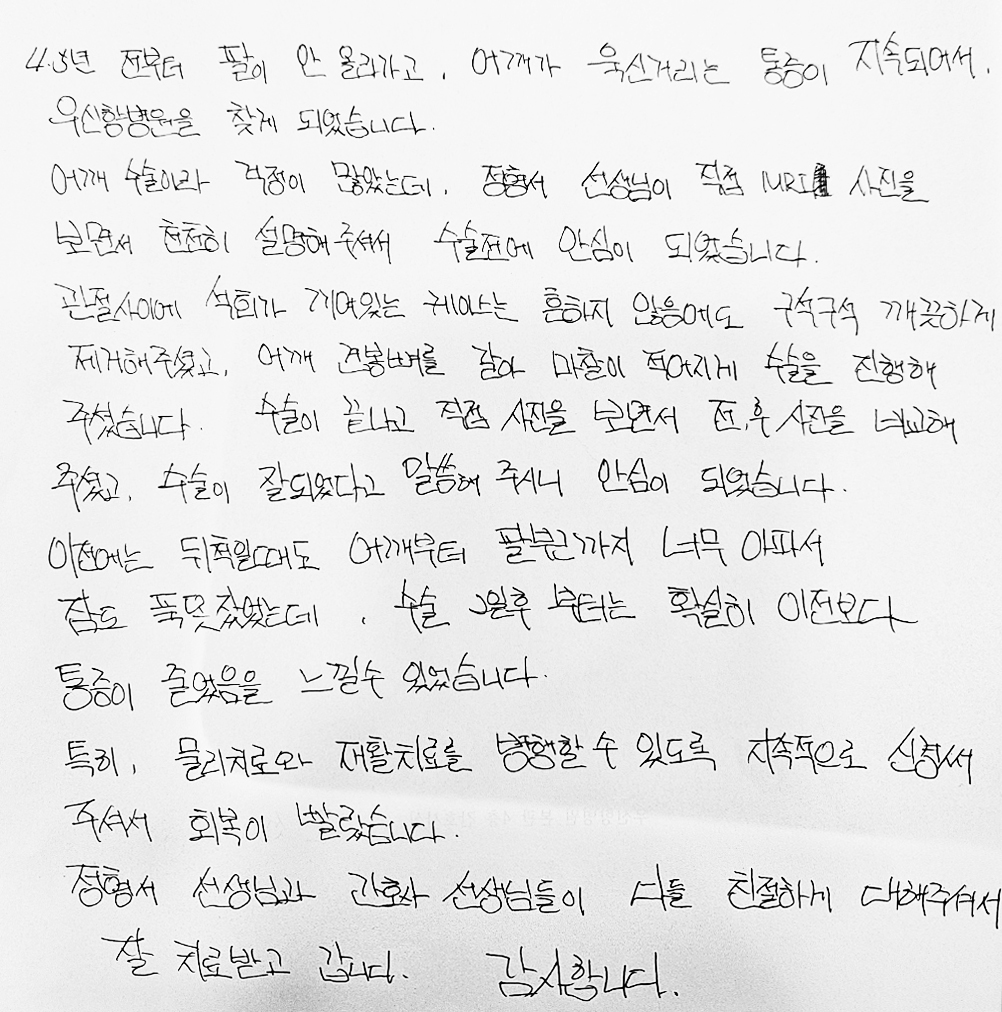 4.5년 전부터 팔이 안 올라가고, 어깨가 욱신거리는 통증이 지속되어서,
우신향병원을 찾게 되었습니다.
어깨 수술이라 걱정이 많았는데, 정형서 선생님이 직접 MRI 사진을
보면서 천천히 설명해주셔서 수술전에 안심이 되었습니다.
관절사이에 석회가 께어있는 케이스는 흔하지 않음에도 구석구석 깨끗하게
제거해주셨고, 어깨 견봉뼈를 갈아 마찰이 적어지게 수술을 진행해
주셨습니다. 수술이 끝나고 직접 사진을 보면서 전,후 사진을 비교해
주셨고, 수술이 잘되었다고 말씀해 주시니 안심이 되었습니다.
이전에는 뒤척일때도 어깨부터 팔뚝근까지 너무 아파서
잠도 푹못잤었는데, 수술 2일후 부터는 확실히 이전보다
통증이 줄었음을 느낄수 있었습니다.
특히, 물리치료와 재활치료를 병행할 수 있도록 지속적으로 신경써
주셔서 회복이 빨랐습니다.
정형서 선생님과 간호사 선생님들이 다들 친절하게 대해주셔서
잘 치료받고 갑니다. 감사합니다.